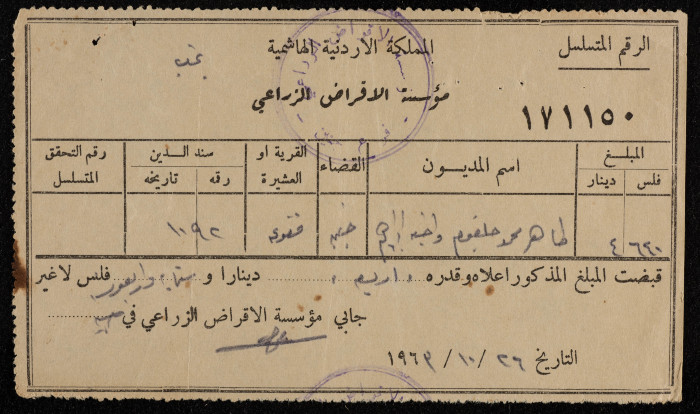 الرقم المتسلسل
المملكة الاردنية الهاشمية
مؤسسة الاقراض الزراعي
١٧١١٥٠
المبلغ
فلس دينار
اسم المديون
القضاء
القرية او العشيرة
سند الدين
رقمه تاريخه
رقم التحقق المتسلسل
٦٤٠ ٤
طاهر محمد
جنين
فقوعه
١٠٩٢
قبضت المبلغ المذكور اعلاه وقدره اربعة دينارا و ستماية واربعون فلس لاغير
جابي مؤسسة الاقراض الزراعي في جنين
التاريخ ٢٦ / ١٠ / ١٩٦٣